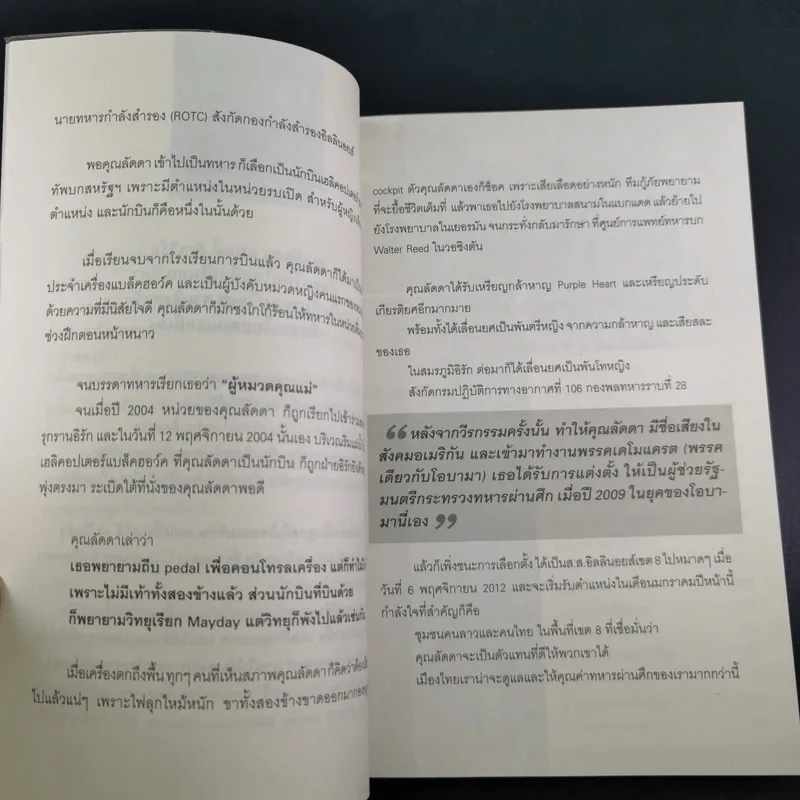 นายทหารกำลังสำรอง (ROTC) สังกัดกองกำลังสำรองอิลลินอยส์
พอคุณลัดดา เข้าไปเป็นทหาร ก็เลือกเป็นนักบินเฮลิคอปเตอร์
ทัพบกสหรัฐฯ เพราะมีตำแหน่งในหน่วยรบเปิด สำหรับผู้หญิง
ตำแหน่ง และนักบินก็คือหนึ่งในนั้นด้วย
เมื่อเรียนจบจากโรงเรียนการบินแล้ว คุณลัดดาก็ได้มา
ประจำเครื่องแบล็คฮอว์ค และเป็นผู้บังคับหมวดหญิงคนแรกของ
ด้วยความที่มีนิสัยใจดี คุณลัดดาก็มักชงโกโก้ร้อนให้ทหารในหน่วย
ช่วงฝึกตอนหน้าหนาว
จนบรรดาทหารเรียกเธอว่า "ผู้หมวดคุณแม่"
จนเมื่อปี 2004 หน่วยของคุณลัดดา ก็ถูกเรียกไปเข้าร่วม
รุกรานอิรัก และในวันที่ 12 พฤศจิกายน 2004 นั้นเอง บริเวณริมแม่น้ำ
เฮลิคอปเตอร์แบล็คฮอว์ค ที่คุณลัดดาเป็นนักบิน ก็ถูกฝ่ายอิรักยิง
พุ่งตรงมา ระเบิดใต้ที่นั่งของคุณลัดดาพอดี
คุณลัดดาเล่าว่า
เธอพยายามถีบ pedal เพื่อคอนโทรลเครื่อง แต่ก็ทำไม่
เพราะไม่มีเท้าทั้งสองข้างแล้ว ส่วนนักบินที่บินด้วย
ก็พยายามวิทยุเรียก Mayday แต่วิทยุก็พังไปแล้วเช่นกัน
เมื่อเครื่องตกถึงพื้น ทุกๆ คนที่เห็นสภาพคุณลัดดา ก็คิดว่า
ไปแล้วแน่ๆ เพราะไฟลุกไหม้หนัก ขาทั้งสองข้างขาดออกมา
cockpit ตัวคุณลัดดาเองก็ช็อค เพราะเสียเลือดอย่างหนัก ทีมกู้ภัยพยายาม
ที่จะยื้อชีวิตเต็มที่ แล้วพาเธอไปยังโรงพยาบาลสนามในแบกแดด แล้วย้ายไป
ยังโรงพยาบาลในเยอรมัน จนกระทั่งกลับมารักษา ที่ศูนย์การแพทย์ทหารบก
Walter Reed ในวอชิงตัน
คุณลัดดาได้รับเหรียญกล้าหาญ Purple Heart และเหรียญประดับ
เกียรติยศอีกมากมาย
พร้อมทั้งได้เลื่อนยศเป็นพันตรีหญิง จากความกล้าหาญ และเสียสละ
ของเธอ
ในสมรภูมิอิรัก ต่อมาก็ได้เลื่อนยศเป็นพันโทหญิง
สังกัดกรมปฏิบัติการทางอากาศที่ 106 กองพลทหารราบที่ 28
“ หลังจากวีรกรรมครั้งนั้น ทำให้คุณลัดดา มีชื่อเสียงใน
สังคมอเมริกัน และเข้ามาทำงานพรรคเดโมแครต (พรรค
เดียวกับโอบามา) เธอได้รับการแต่งตั้ง ให้เป็นผู้ช่วยรัฐ-
มนตรีกระทรวงทหารผ่านศึก เมื่อปี 2009 ในยุคของโอบา-
มานี่เอง ”
แล้วก็เพิ่งชนะการเลือกตั้ง ได้เป็นส.ส.อิลลินอยส์เขต 8 ไปหมาดๆ เมื่อ
วันที่ 6 พฤศจิกายน 2012 และจะเริ่มรับตำแหน่งในเดือนมกราคมปีหน้านี้
กำลังใจที่สำคัญก็คือ
ชุมชนคนลาวและคนไทย ในพื้นที่เขต 8 ที่เชื่อมั่นว่า
คุณลัดดาจะเป็นตัวแทนที่ดีให้พวกเขาได้
เมืองไทยเราน่าจะดูแลและให้คุณค่าทหารผ่านศึกของเรามากกว่านี้